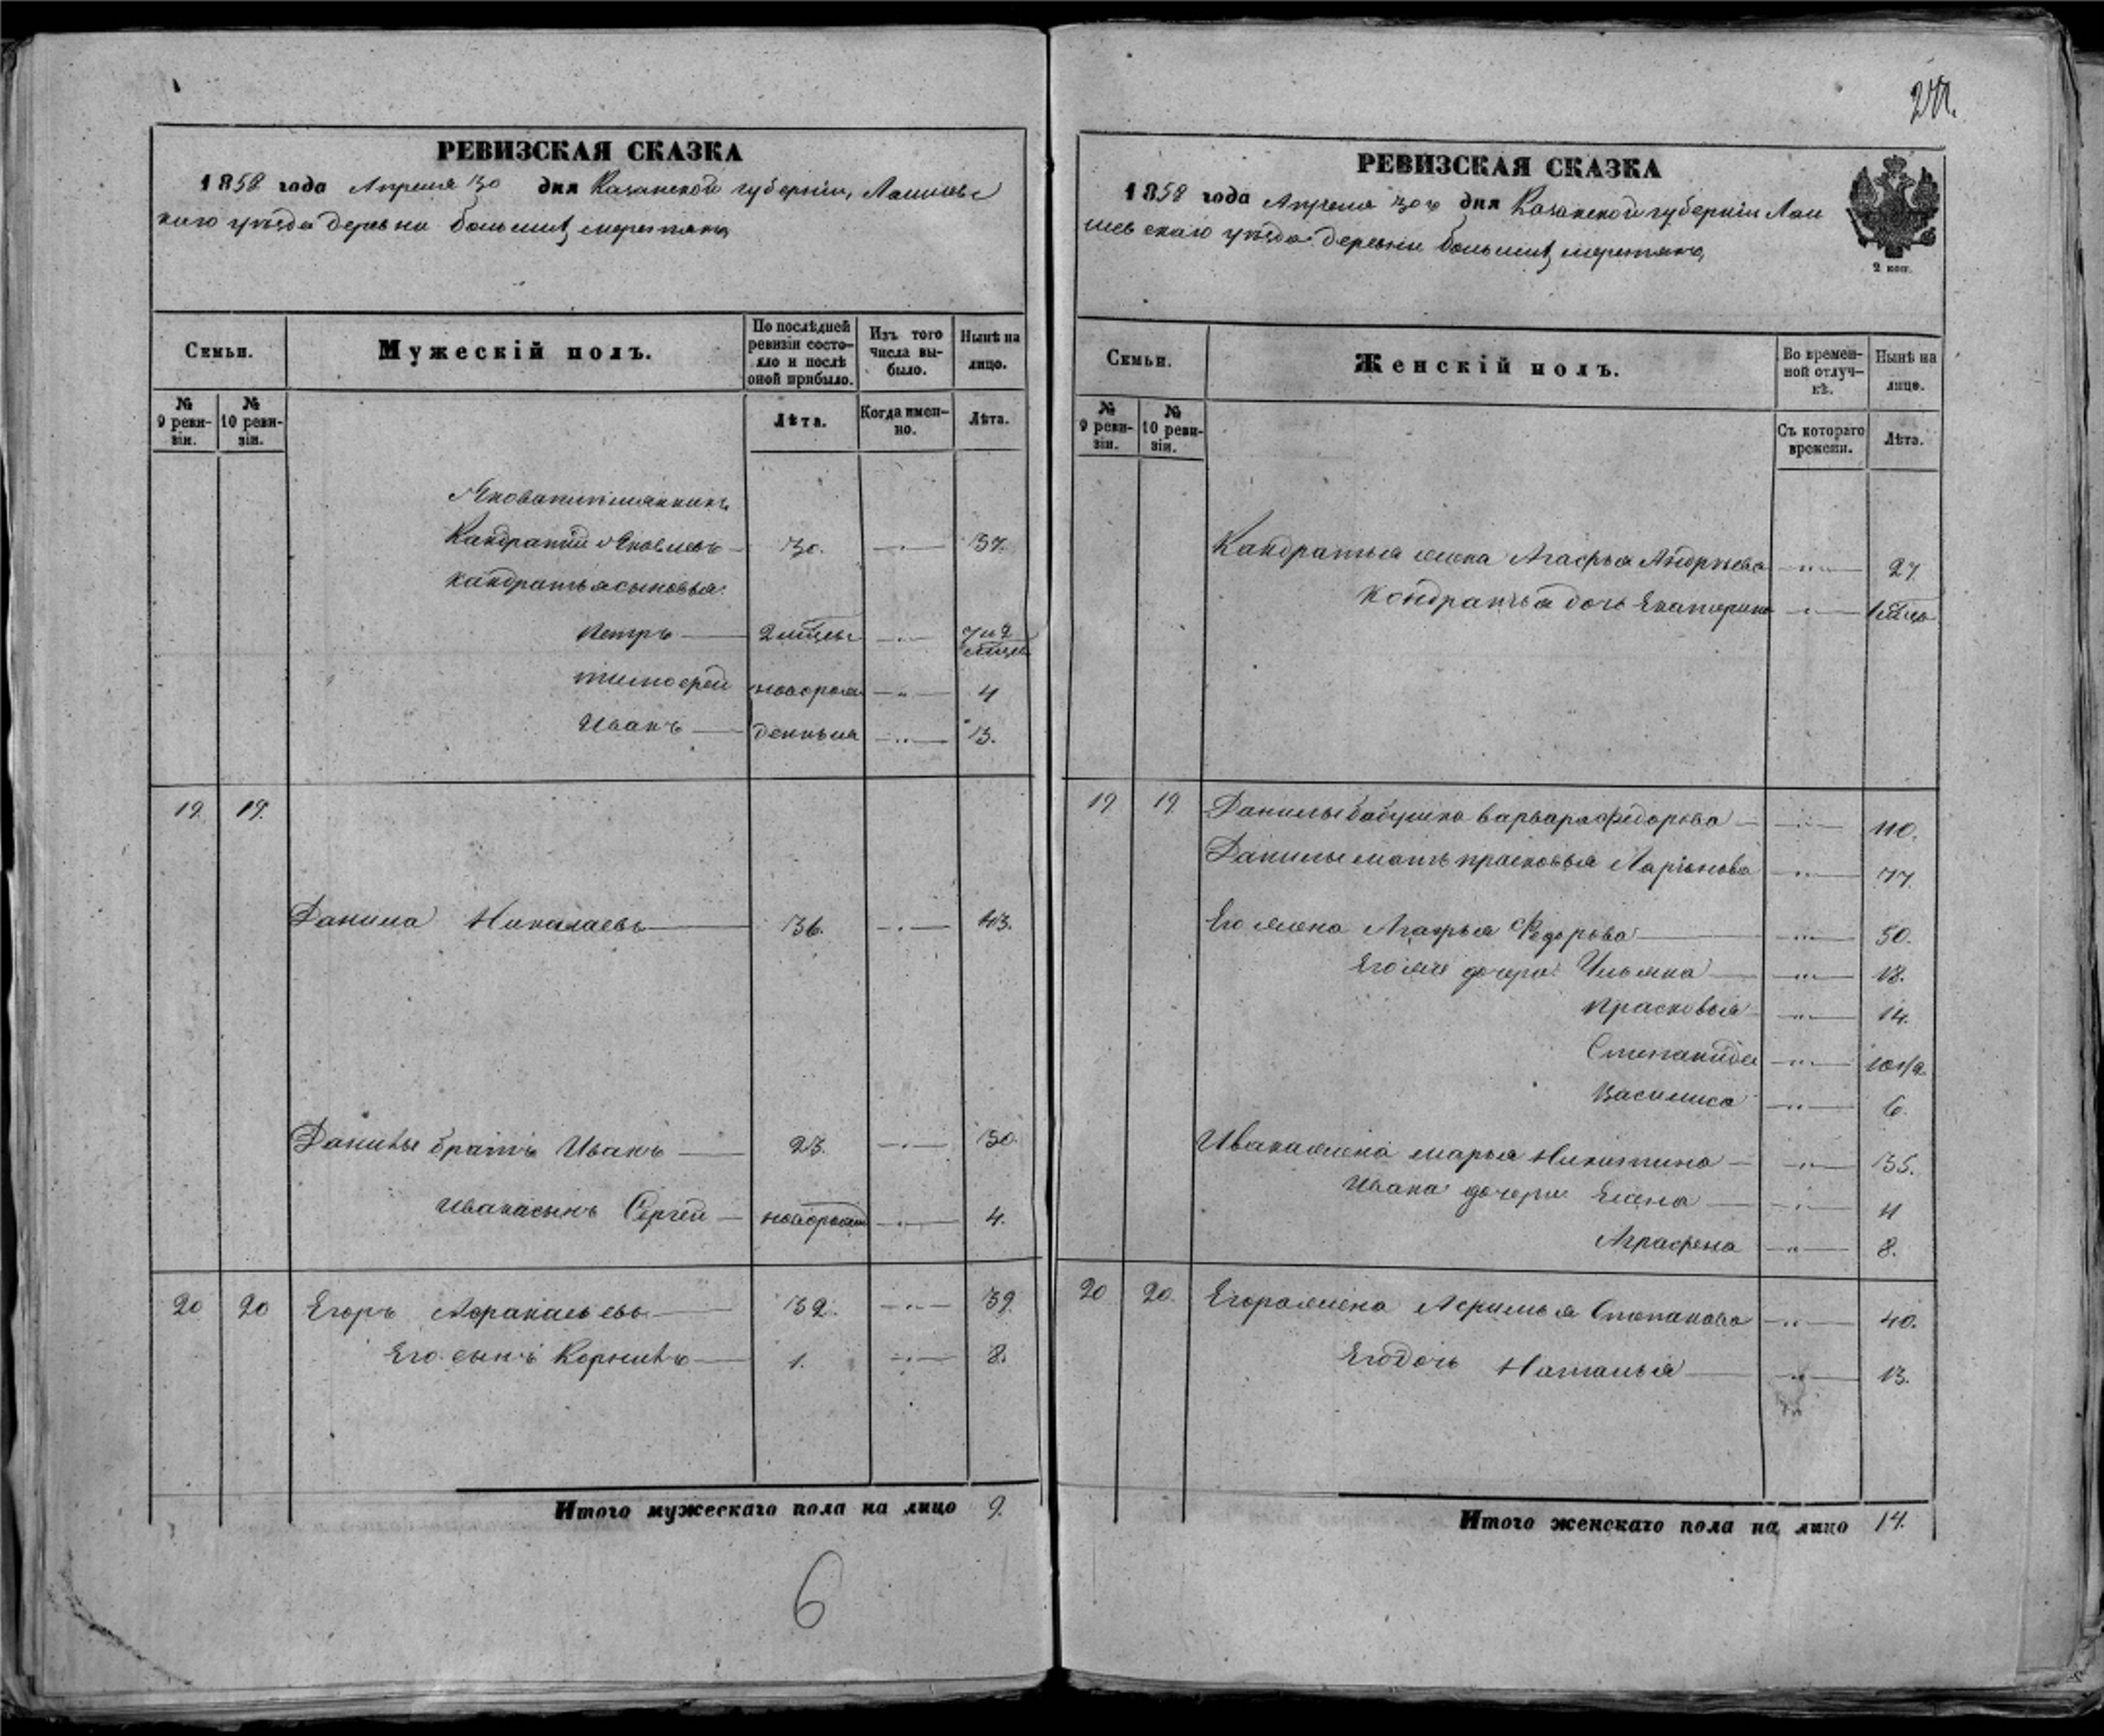 РЕВИЗСКАЯ СКАЗКА
1858 года Апреля 30 дня Казанской губерніи, Лаишевс
каго уѣзда деревни большихъ
Семьи.
Мужескій полъ.
По послѣдней ревизіи состо-
яло и послѣ оной прибыло.
Изъ того числа вы-
было.
Нынѣ на лицо.
№ 9 реви-
зіи.
№ 10 реви-
зіи.
Лѣта.
Когда имен-
но.
Лѣта.
Якова
Кандратій Яковлевъ 30. 37.
кандратья сыновья
Петръ 2 мѣсяц 7 и 2 мѣсяц
тимофей новорож 4
Иванъ денныя 3.
19. 19.
Данила Николаевъ 36. 43.
Данилы братъ Иванъ 23. 30.
Ивана сынъ Сергей новорожд 4.
20 20 Егоръ Афанасьевъ 32. 39.
Его сынъ Корнилъ 1. 8.
Итого мужескаго пола на лицо 9.
6
РЕВИЗСКАЯ СКАЗКА
1858 года Апреля 30го дня Казанской губерніи Лаи
шевскаго уѣзда деревни большихъ
2 коп.
Семьи.
Женскій полъ.
Во времен-
ной отлуч-
кѣ.
Нынѣ на лицо.
№ 9 реви-
зіи.
№ 10 реви-
зіи.
Съ котораго времени.
Лѣта.
Кандратья жена Агафья Андрѣева 27
Кондратья дочь Екатерина
19 19. Данилы бабушка варвара федорова 110.
Данилы мать прасковья Ларіонова 77.
Его жена Агафья Федорова 50.
Его же дочери Ульяна 18.
Прасковья 14.
Степанида 10 1/2
Василиса 6.
Ивана жена марья Никитина 35.
Ивана дочери Елена 11
Аграфена 8.
20 20. Егора жена Афимья Степанова 40.
Его дочь Наталья 13.
Итого женскаго пола на лицо 14.